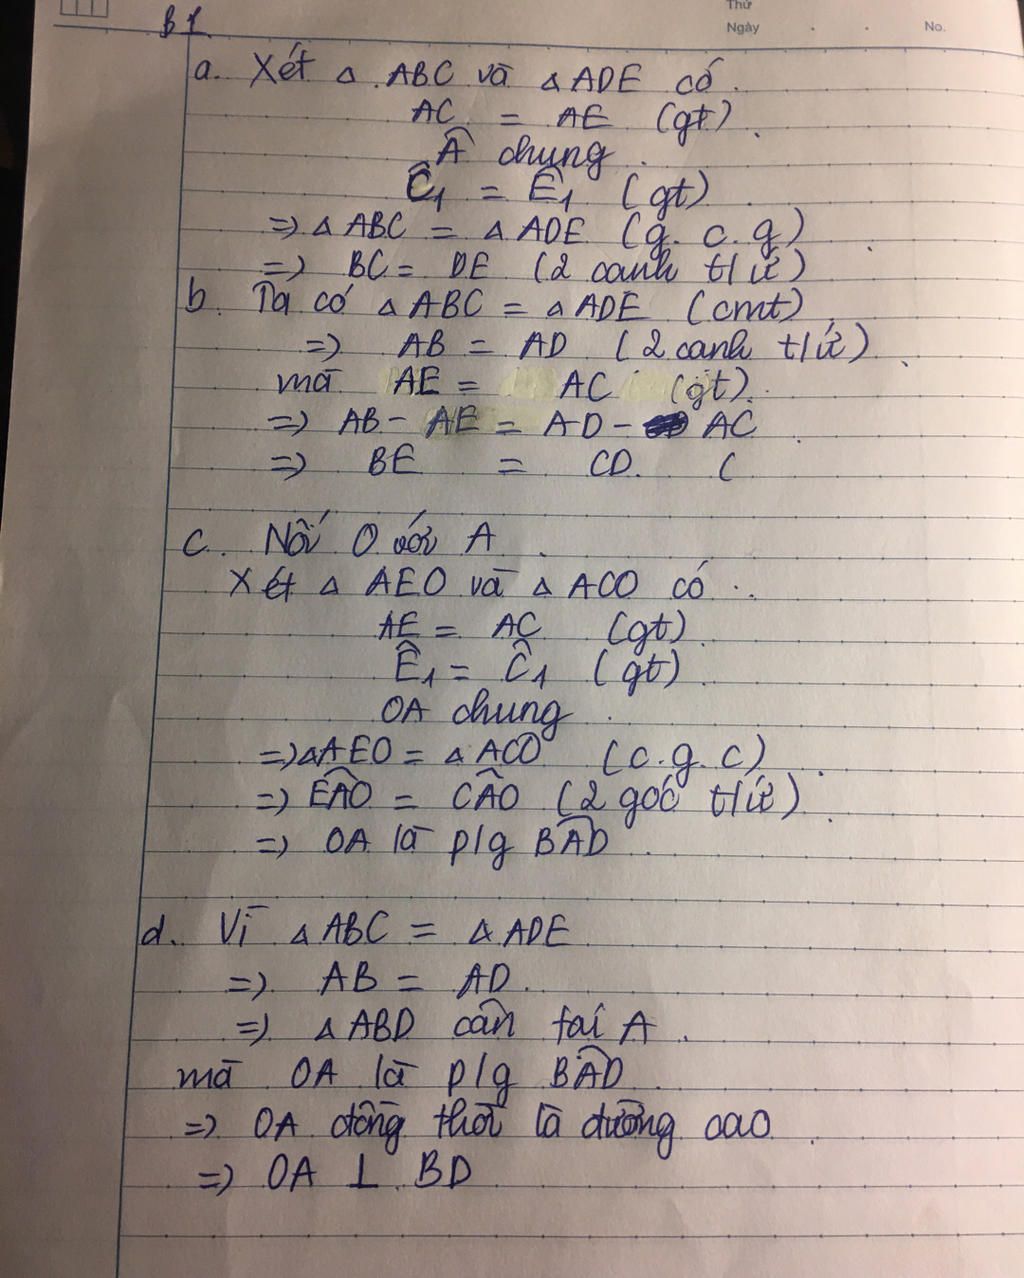 Thứ
Ngày
No.
B1
a. Xét Δ ABC và Δ ADE có
AC = AE (gt)
Â chung
Ĉ1 = Ê1 (gt)
=> Δ ABC = Δ ADE (g.c.g)
=> BC = DE (2 cạnh t/ứ)
b. Ta có Δ ABC = Δ ADE (cmt)
=> AB = AD (2 cạnh t/ứ)
mà AE = AC (gt)
=> AB - AE = AD - AC
=> BE = CD (
c. Nối O với A
Xét Δ AEO và Δ ACO có
AE = AC (gt)
Ê1 = Ĉ1 (gt)
OA chung
=> Δ AEO = Δ ACO (c.g.c)
=> EÂO = CÂO (2 góc t/ứ)
=> OA là p/g BÂD
d. Vì Δ ABC = Δ ADE
=> AB = AD
=> Δ ABD cân tại A
mà OA là p/g BÂD
=> OA đồng thời là đường cao
=> OA ⊥ BD